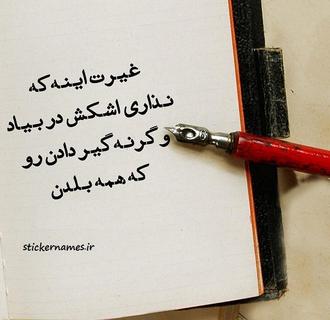 غیرت اینه که
نذاری اشکش در بیاد
و گرنه گیر دادن رو
که همه بلدن
stickernames.ir